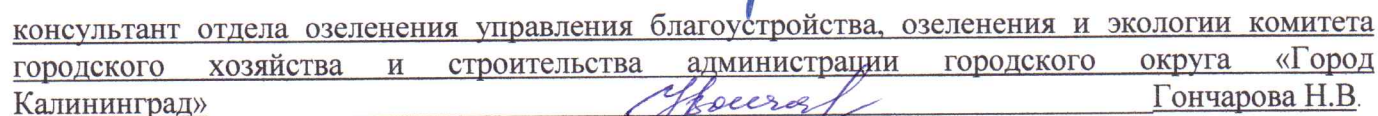 консультант отдела озеленения управления благоустройства, озеленения и экологии комитета
городского хозяйства и строительства администрации городского округа «Город
Калининград» Гончарова Н.В.